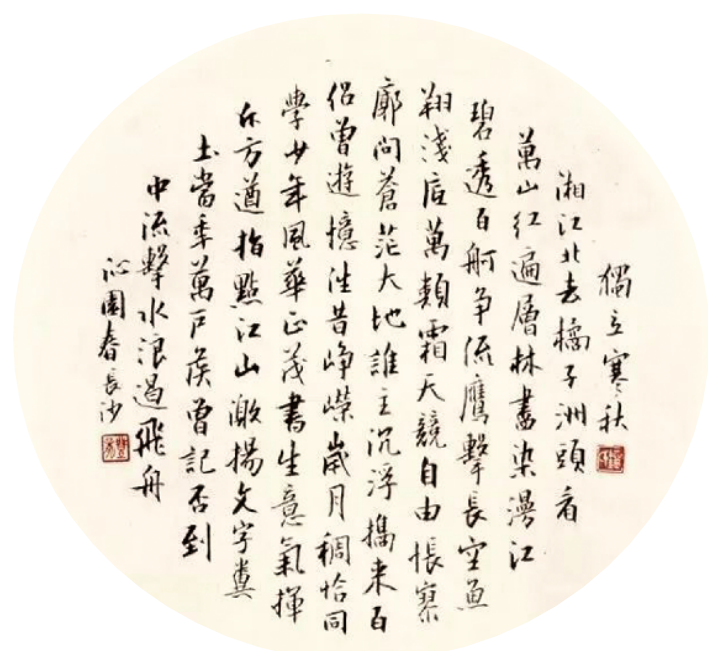 獨立寒秋
湘江北去橘子洲頭看
萬山紅遍層林盡染漫江
碧透百舸争流鷹擊長空魚
翔淺底萬類霜天競自由悵寥
廓問蒼茫大地誰主沉浮擕來百
侶曾遊憶往昔崢嶸歲月稠恰同
學少年風華正茂書生意氣揮
斥方遒指點江山激揚文字糞
土當年萬戶侯曾記否到
中流擊水浪遏飛舟
沁園春長沙